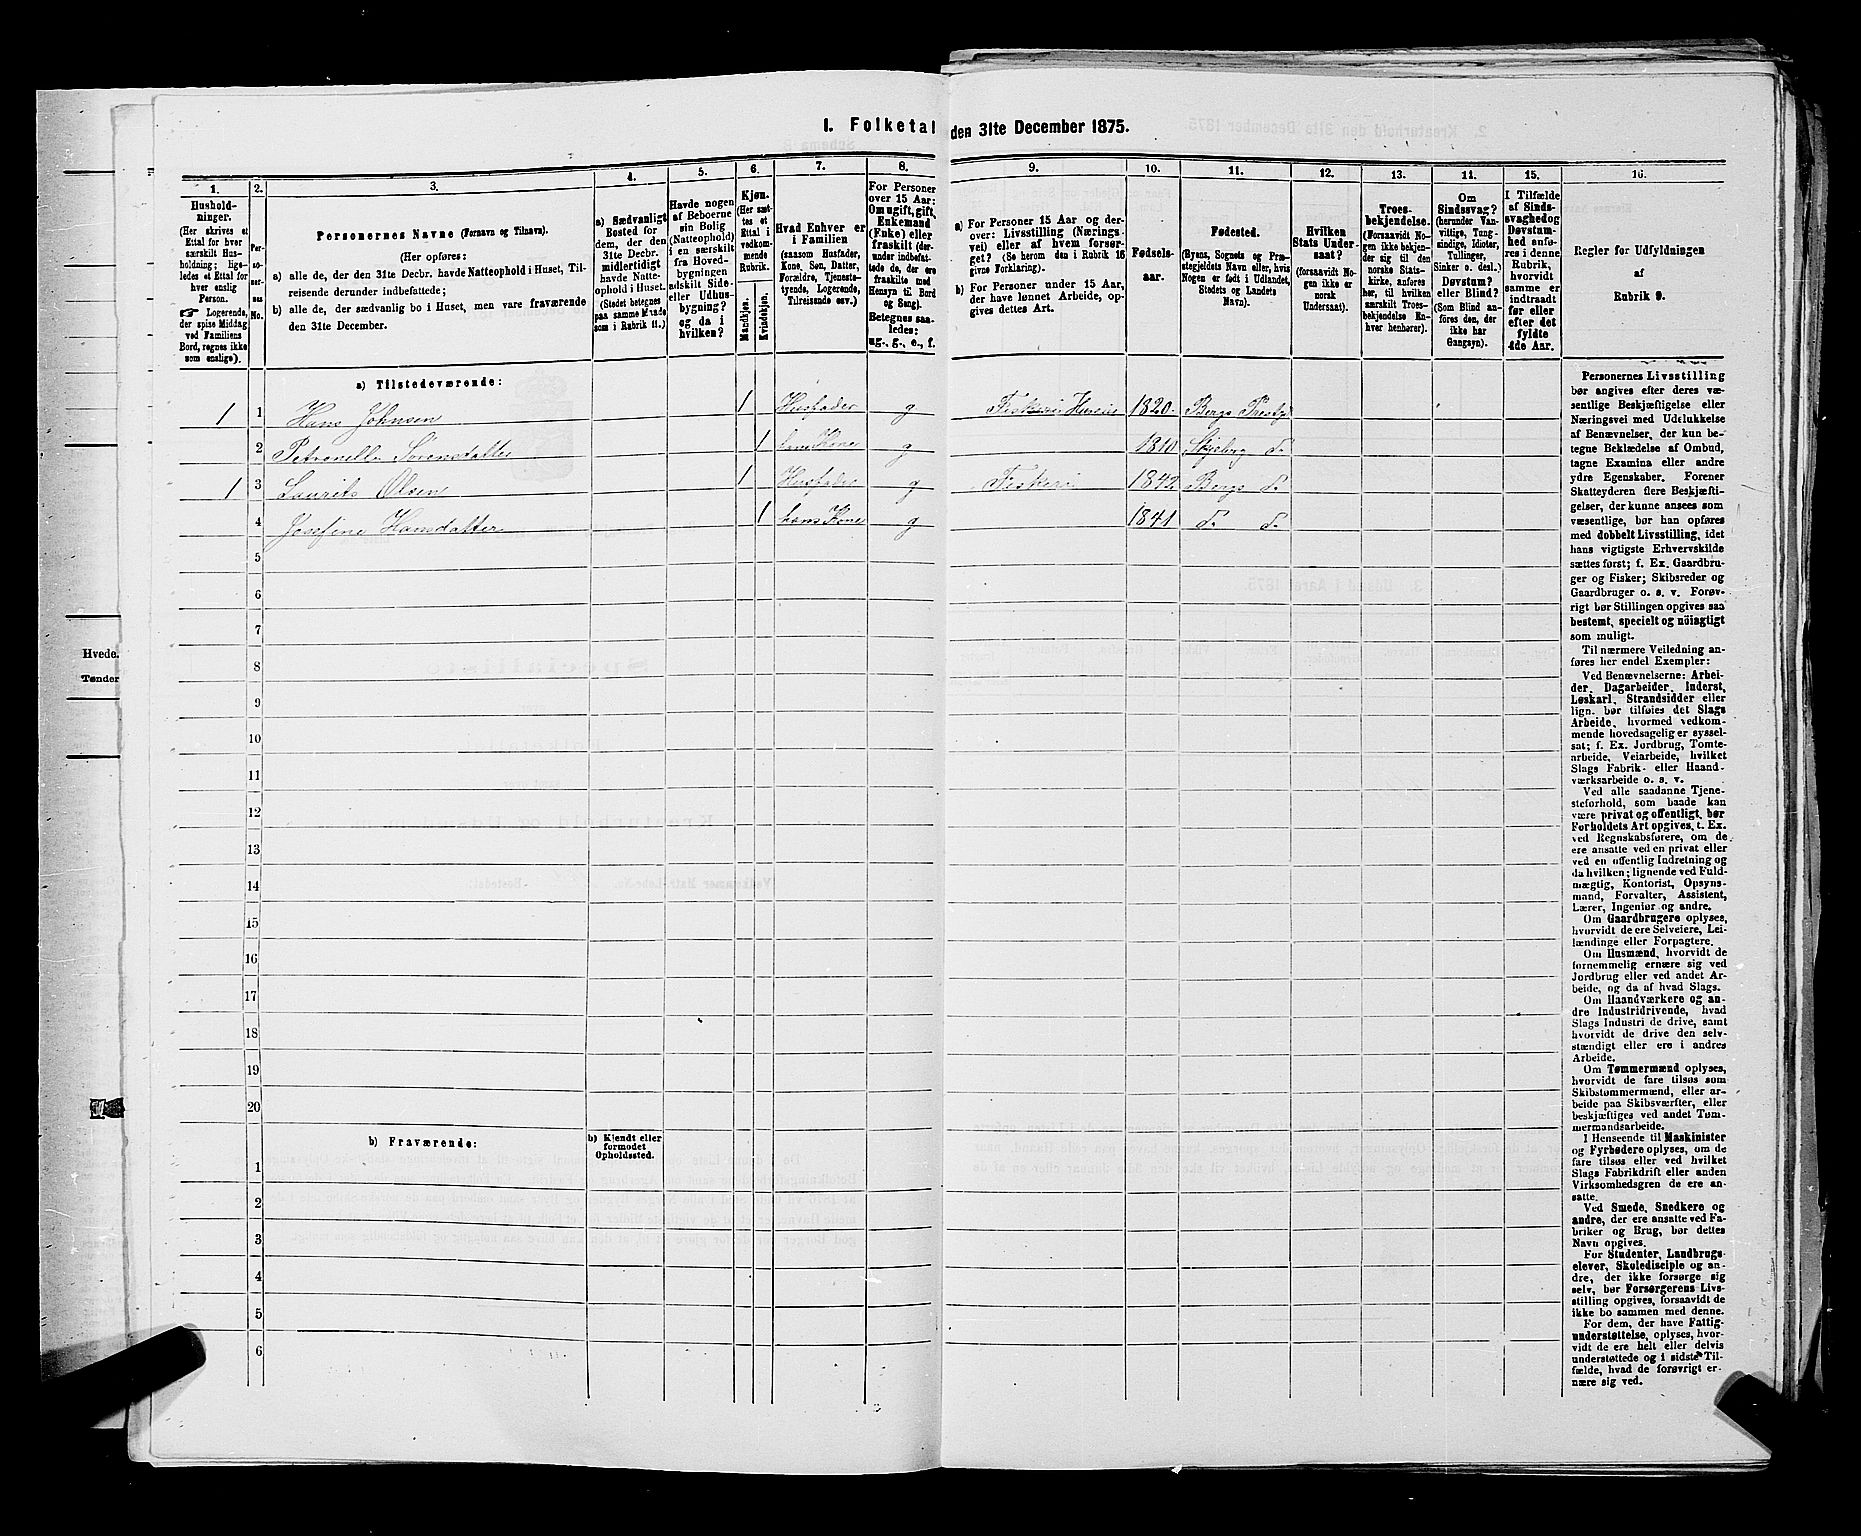 I. Folketal den 31te December 1875.
1.
Husholdninger.
(Her skrives et
Ettal for hver
særskilt Husholdning;
ligeledes et Ettal for
hver enslig
Person.
☞ Logerende,
der spise Middag
ved Familiens
Bord, regnes ikke
som enslige).
2.
Personernes
No.
3.
Personernes Navne (Fornavn og Tilnavn).
(Her opføres:
a) alle de, der den 31te Decbr. havde Natteophold i Huset, Tilreisende derunder indbefattede;
b) alle de, der sædvanlig bo i Huset, men vare fraværende
den 31te December.
4.
a) Sædvanligt
Bosted for
dem, der den
31te Decbr.
midlertidigt
havde Natteophold i Huset.
(Stedet betegnes
paa samme Maade
som i Rubrik 11.)
5.
Havde nogen
af Beboerne
sin Bolig
(Natteophold)
i en særskilt
fra Hovedbygningen
adskilt Side-
eller Udhusbygning?
og da i
hvilken?
6.
Kjøn.
(Her sættes et
Ettal i
vedkommende
Rubrik.
Mandkjøn.
Kvindekjøn.
7.
Hvad Enhver er
i Familien
(saasom Husfader,
Kone, Søn, Datter,
Forældre, Tjenestetyende, Logerende,
Tilreisende osv.)
8.
For Personer
over 15 Aar:
Om ugift, gift,
Enkemand
(Enke) eller
fraskilt (derunder indbefattede de, der ere
fraskilte med
Hensyn til Bord
og Seng).
Betegnes saaledes:
ug., g., e., f.
9.
a) For Personer 15 Aar og derover: Livsstilling (Næringsvei) eller af hvem forsørget? (Se herom den i Rubrik 16
givne Forklaring).
b) For Personer under 15 Aar,
der have lønnet Arbeide, opgives dettes Art.
10.
Fødselsaar.
11.
Fødested.
(Byens, Sognets og Præstegjeldets Navn eller, hvis
Nogen er født i Udlandet,
Stedets og Landets
Navn).
12.
Hvilken
Stats Undersaat?
(forsaavidt Nogen ikke er
norsk
Undersaat).
13.
Troesbekjendelse.
(Forsaavidt Nogen ikke bekjender sig til den
norske Statskirke, anføres
her, til hvilken
særskilt Troesbekjendelse Enhver henhører).
14.
Om
Sindssvag?
(herunder Vanvittige, Tungsindige, Idioter,
Tullinger,
Sinker o. desl.)
Døvstum?
eller Blind?
(Som Blind anføres den, der
ikke har
Gangsyn).
15.
I Tilfælde
af Sindssvaghed og
Døvstumhed anføres i denne
Rubrik,
hvorvidt
samme er
indtraadt
før eller
efter det
fyldte
4de Aar.
16.
Regler for Udfyldningen
af
Rubrik 9.
a) Tilstedeværende:
1 1 Hans Johnsen 1 Husfader g Fiskeri 1820 Bergs Prestgj
2 Petronelle Sørensdatter 1 hans Kone g 1810 Skjeberg do
1 3 Laurits Olsen 1 Husfader g Fiskeri 1842 Bergs do
4 Josefine Hansdatter 1 hans Kone g 1841 do do
5
6
7
8
9
10
11
12
13
14
15
16
17
18
19
20
b) Fraværende:
b) Kjendt eller
formodet
Opholdssted.
1
2
3
4
5
6
Personernes Livsstilling
bør angives efter deres væsentlige Beskjæftigelse eller
Næringsvei med Udelukkelse
af Benævnelser, der kun betegne Beklædelse af Ombud,
tagne Examina eller andre
ydre Egenskaber. Forener
Skatteyderen flere Beskjæftigelser, der kunne ansees som
væsentlige, bør han opføres
med dobbelt Livsstilling, idet
hans vigtigste Erhvervskilde
sættes først; f. Ex. Gaardbruger og Fisker; Skibsreder og
Gaardbruger o. s. v. Forøvrigt bør Stillingen opgives saa
bestemt, specielt og nøiagtigt
som muligt.
Til nærmere Veiledning anføres her endel Exempler:
Ved Benævnelserne: Arbeider, Dagarbeider, Inderst,
Løskarl, Strandsidder eller
lign. bør tilføies det Slags
Arbeide, hvormed vedkommende hovedsagelig er sysselsat; f. Ex. Jordbrug, Tomtearbeide, Veiarbeide, hvilket
Slags Fabrik- eller Haandværksarbeide o. s. v.
Ved alle saadanne Tjenesteforhold, som baade kan
være privat og offentligt, bør
Forholdets Art opgives, t. Ex.
ved Regnskabsførere, om de
ere ansatte ved en privat eller
ved en offentlig Indretning og
da hvilken; lignende ved Fuldmægtig, Kontorist, Opsynsmand, Forvalter, Assistent,
Lærer, Ingeniør og andre.
Om Gaardbrugere oplyses,
hvorvidt de ere Selveiere, Leilændinge eller Forpagtere.
Om Husmænd, hvorvidt de
fornemmelig ernære sig ved
Jordbrug eller ved andet Arbeide, og da af hvad Slags.
Om Haandværkere og andre Industridrivende, hvad
Slags Industri de drive, samt
hvorvidt de drive den selvstændigt eller ere i andres
Arbeide.
Om Tømmermænd oplyses,
hvorvidt de fare tilsøs som
Skibstømmermænd, eller arbeide paa Skibsværfter, eller
beskjæftiges ved andet Tømmermandsarbeide.
I Henseende til Maskinister
og Fyrbødere oplyses, om de
fare tilsøs eller ved hvilket
Slags Fabrikdrift eller anden
Virksomhedsgren de ere ansatte.
Ved Smede, Snedkere og
andre, der ere ansatte ved Fabriker og Brug, bør dettes
Navn opgives.
For Studenter, Landbrugselever, Skoledisciple og andre, der ikke forsørge sig
selv, bør Forsørgerens Livsstilling opgives, forsaavidt de
ikke bo sammen med denne.
For dem, der have Fattigunderstøttelse, oplyses, hvorvidt de ere helt eller delvis
understøttede og i sidste Tilfælde, hvad de forøvrigt ernære sig ved.
Hvede.
Tønder